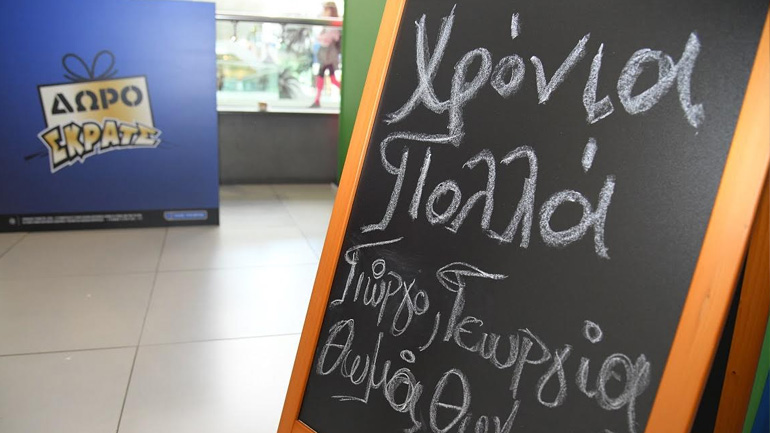 ΔΩΡΟ
ΣΚΡΑΤΣ
Χρόνια
Πολλά
Γιώργο, Γεωργία
Θωμάς